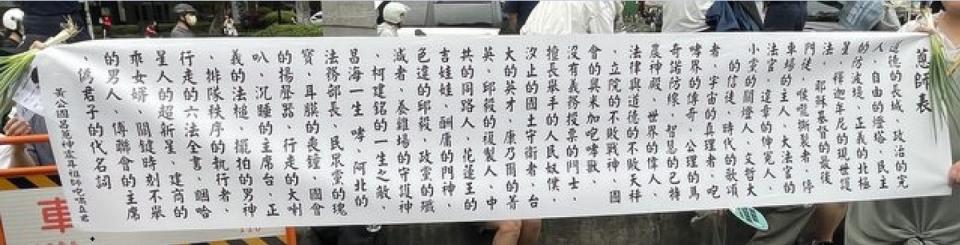 蔥師表
道德的長城、政治的完
人、自由的燈塔、民主
防波堤、正義的北極
星、釋迦牟尼的現世護
法、耶穌基督的最後
門徒、喉嚨撕裂者、停
車場的主人、大法官的
法官、違章的伸冤人、
小黨的關燈人、文哲大
的信徒、時代的歌頌
者、宇宙的真理者、咆
哮界的傳奇、公理的馬
奇諾防線、智慧的巴特
農神殿、世界的偉人、
法律與道德的不敗天秤
、立院的不敗戰神、國
會的奧米加咆哮獸、
沒有義務投票的鬥士、
擅長舉手的人民奴僕、
汐止的國土守衛者、台
大的英才、康乃爾的菁
英、邱毅的複製人、中
共的同路人、花蓮王的
吉娃娃、酬庸的門神、
色違的邱毅、政黨的殲
滅者、養雞場的守護神
、柯建銘的一生之敵、
昌海一生哮、阿北的
法務部長、民眾黨的瑰
寶、耳膜的喪鐘、國會
的揚聲器、行走的大喇
叭、沉睡的主席台、正
義的法槌、擺拍的男神
、排隊秩序的執行者、
行走的六法全書、蟈哈
星人的超新星、建商的
乖女婿、關鍵時刻不舉
的男人、傅聯會的主席
、偽君子的代名詞
黃公國昌 祖師咆哮真君
車